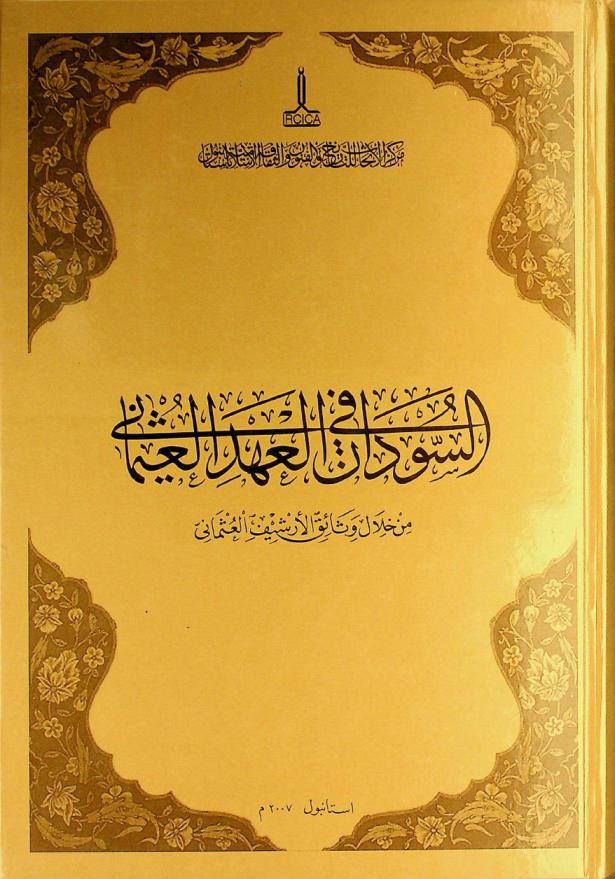 IRCICA
مركز الأبحاث للتاريخ والفنون والثقافة الإسلامية باستانبول
السُّودَان في العَهْدِ العُثْمَانِي
مِنْ خِلَالِ وَثَائِقِ الأَرْشِيفِ العُثْمَانِيّ
استانبول ٢٠٠٧ م